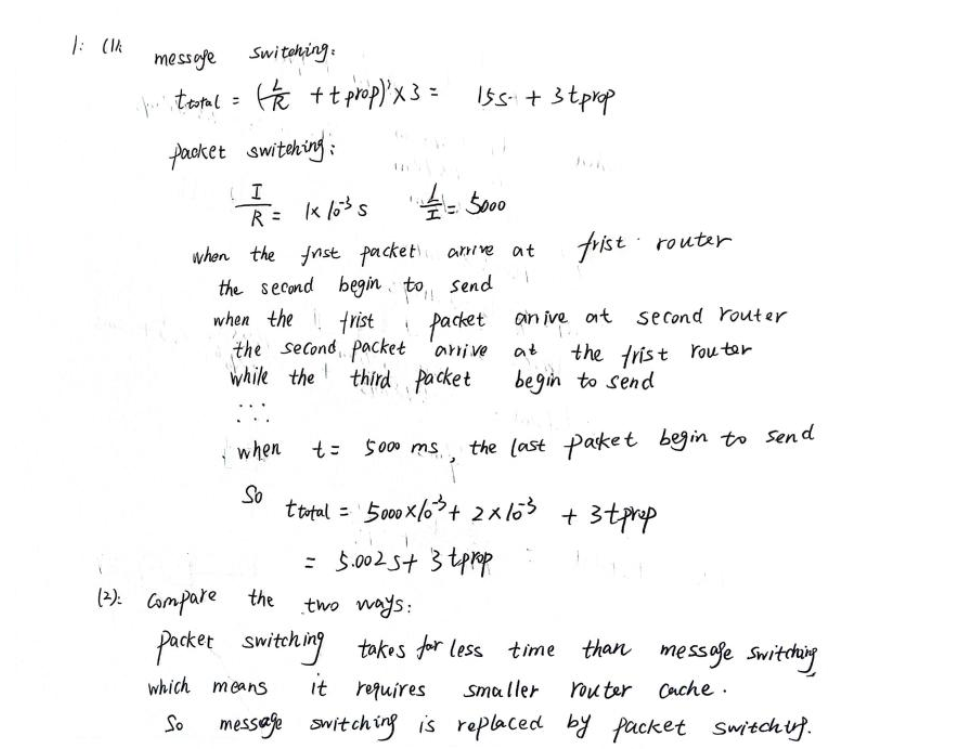 1: (1):
message switching:
t total = (L/R + t prop) × 3 = 15s + 3 tprop
packet switching:
I/R = 1×10⁻³ s L/I = 5000
when the frist packet arrive at frist router
the second begin to send
when the frist packet arrive at second router
the second packet arrive at the frist router
while the third packet begin to send
...
...
when t = 5000 ms, the last packet begin to send
So
t total = 5000×10⁻³ + 2×10⁻³ + 3tprop
= 5.002s + 3 tprop
(2): Compare the two ways:
Packet switching takes far less time than message switching
which means it requires smaller router cache.
So message switching is replaced by packet switching.